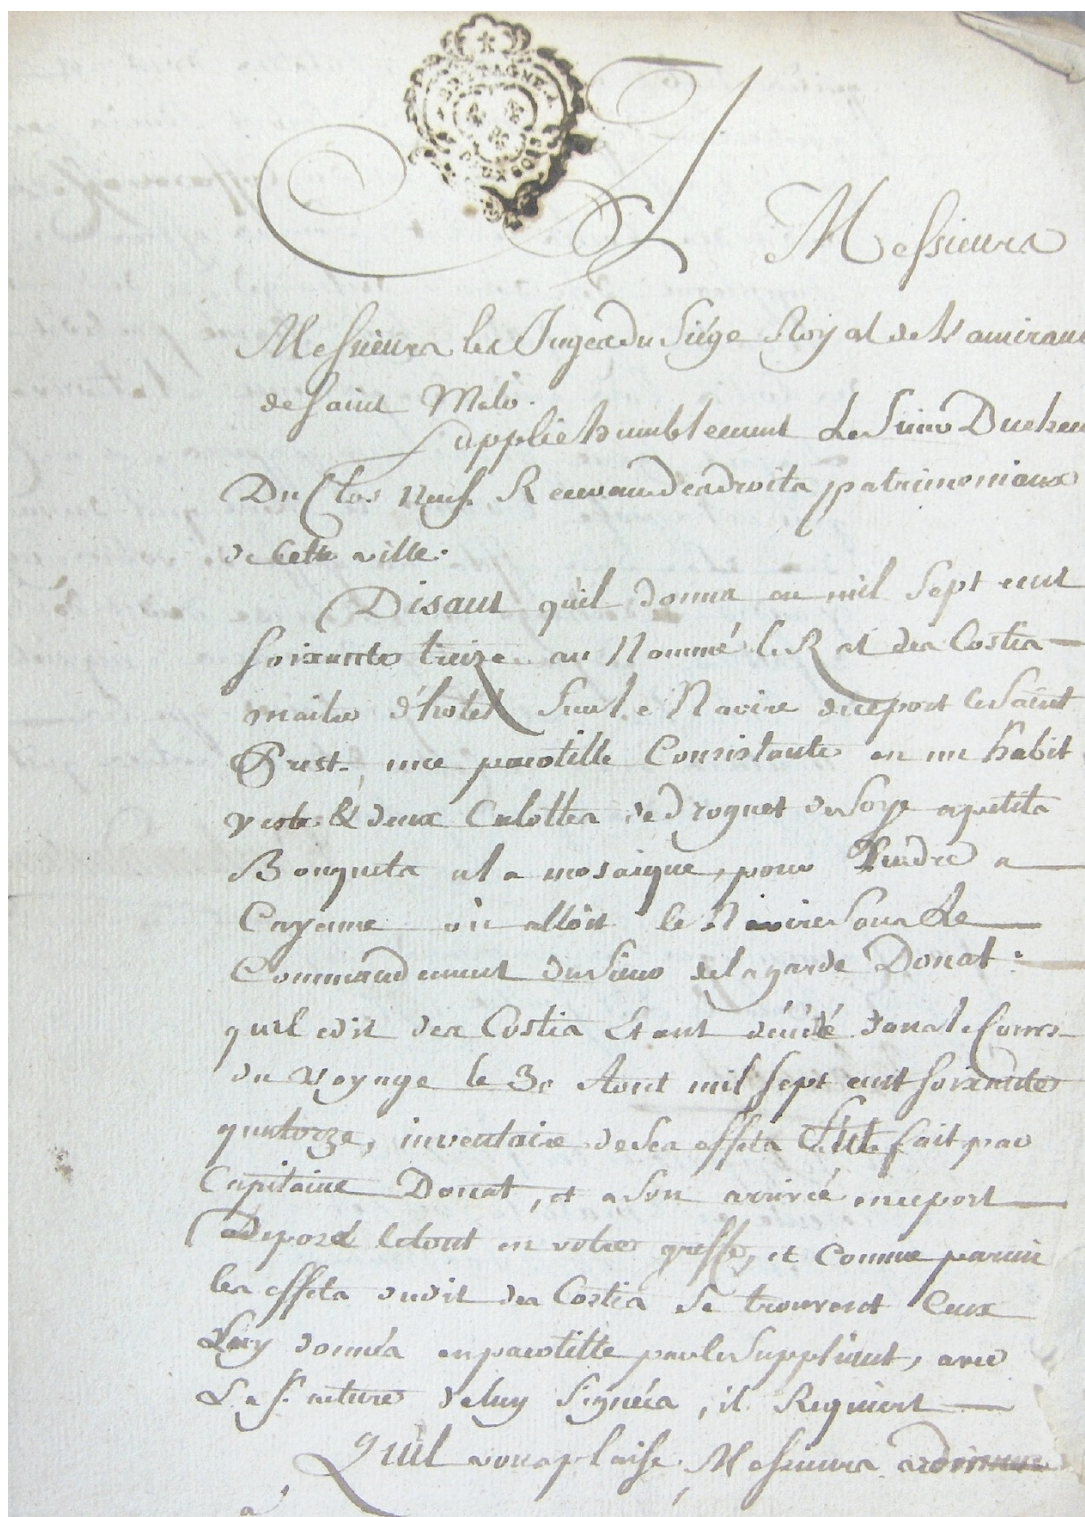 BRETAGNE
A Messieurs
Messieurs les Juges du Siége Royal de L'amiraute
de Saint Malo.
Supplie humblement Le Sieur Duchene
Du Clos Neuf Receveur des droits patrimoniaux
de Cette ville.
Disant qu'il donna en mil Sept cent
soixante treize au Nommé le Rat des Costis
maitre d'hotel Sur le Navire de ce port le Saint
Prest, une pacotille Consistante en un habit
veste & deux Culottes de droguet de Soye a petits
Bouquets a la mosaique, pour Vendre a
Cayenne où alloit le Navire Sous Le
Commandement du Sieur de la garde Donat :
qu'ledit des Costis Etant décédé dans le Cours
du voyage le 30 Aout mil Sept cent soixante
quatorze, inventaire de Ses effets fut fait par
Capitaine Donat, et a Son arrivée en ce port
a deposé le tout en votre greffe, et Comme parmi
les effets dudit des Costis Se trouvent Ceux
Luy donnés en pacotille par le Suppliant, avec
La facture de luy Signéea, il Requiert
Qu'il vous plaise, Messieurs
a